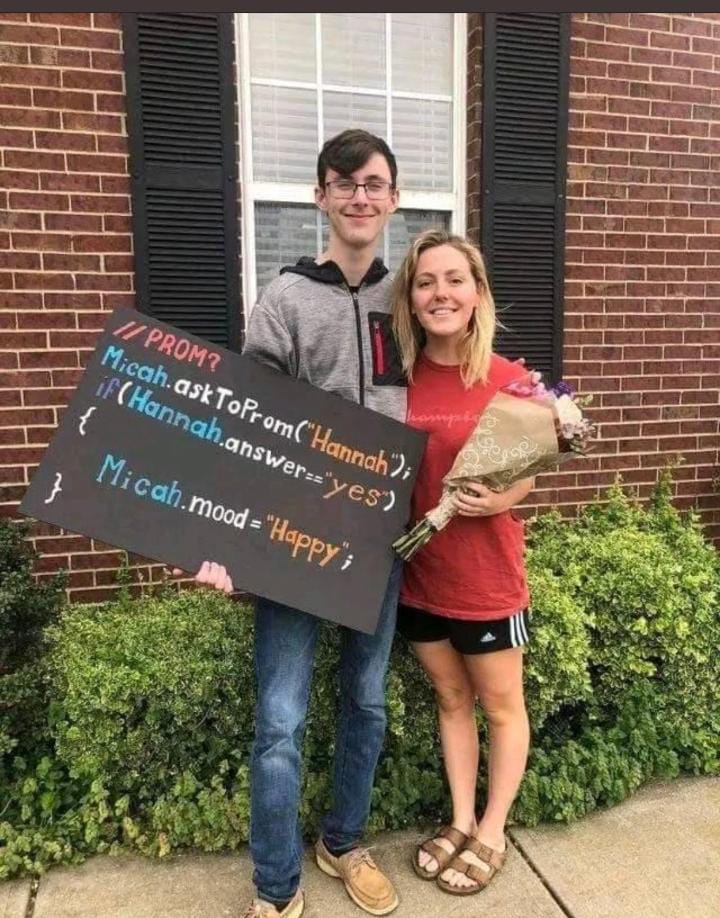 // PROM?
Micah.askToProm("Hannah");
if(Hannah.answer=="yes")
{
Micah.mood="Happy";
}
adidas